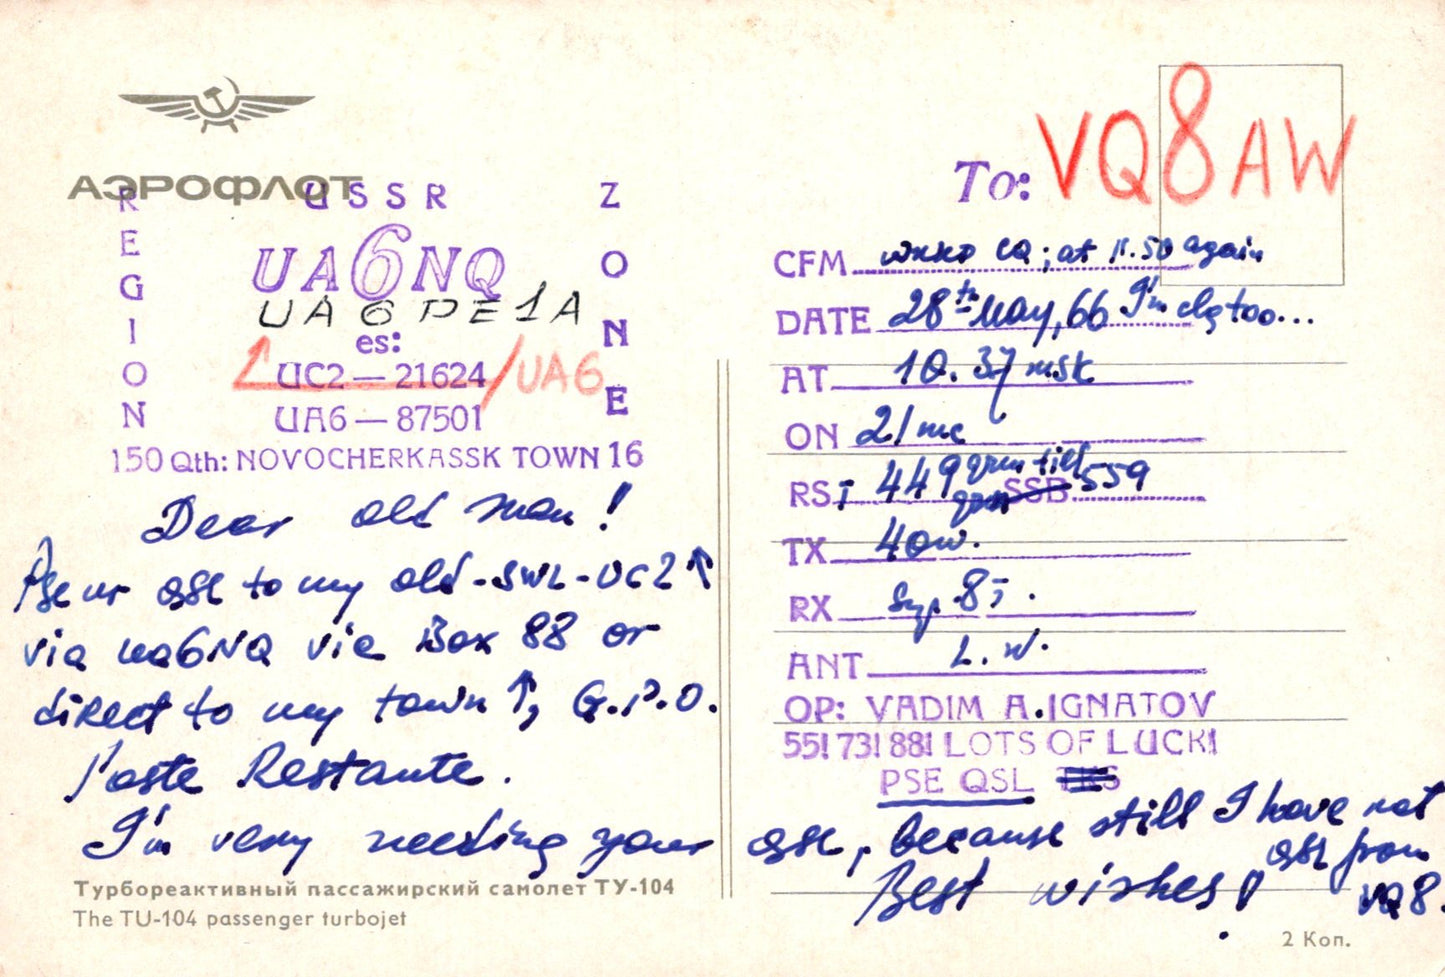 АЭРОФЛОТ
USSR
REGION
ZONE
UA6NQ
UA6DE1A
es:
UC2 — 21624/UA6
UA6 — 87501
150 Qth: NOVOCHERKASSK TOWN 16
Dear old man!
Pse ur qsl to my old-SWL-UC2↑
via ua6NQ via Box 88 or
direct to my town ↑, G.P.O.
Poste Restante.
I'm very needing your qsl, because still I have not
qsl from
VQ8.
Best wishes!
Турбореактивный пассажирский самолет ТУ-104
The TU-104 passenger turbojet
To: VQ8AW
CFM CQ; at 11.50 again
DATE 28th May, 66 I'm clg too...
AT 10.37 msk
ON 21 mc
RST 449 till SSB 559
TX 40w.
RX 8T.
ANT L.W.
OP: VADIM A.IGNATOV
55! 73! 88! LOTS OF LUCK!
PSE QSL TKS
2 Коп.